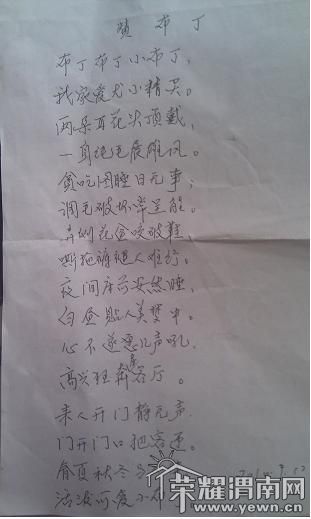 赞布丁
布丁布丁小布丁,
我家爱犬小精灵。
两朵耳花头顶戴,
一身绝毛展雄风。
贪吃困睡日无事;
调毛破坏举逞能。
弄倒花盆咬破鞋,
嘶拖裤腿人难行。
夜间床前安然睡,
白昼贴人美梦中。
心不遂意几声吼,
高兴狂奔客厅。
来人开门静无声
门开门口把客迎。
春夏秋冬
活泼可爱小布
荣耀渭南网